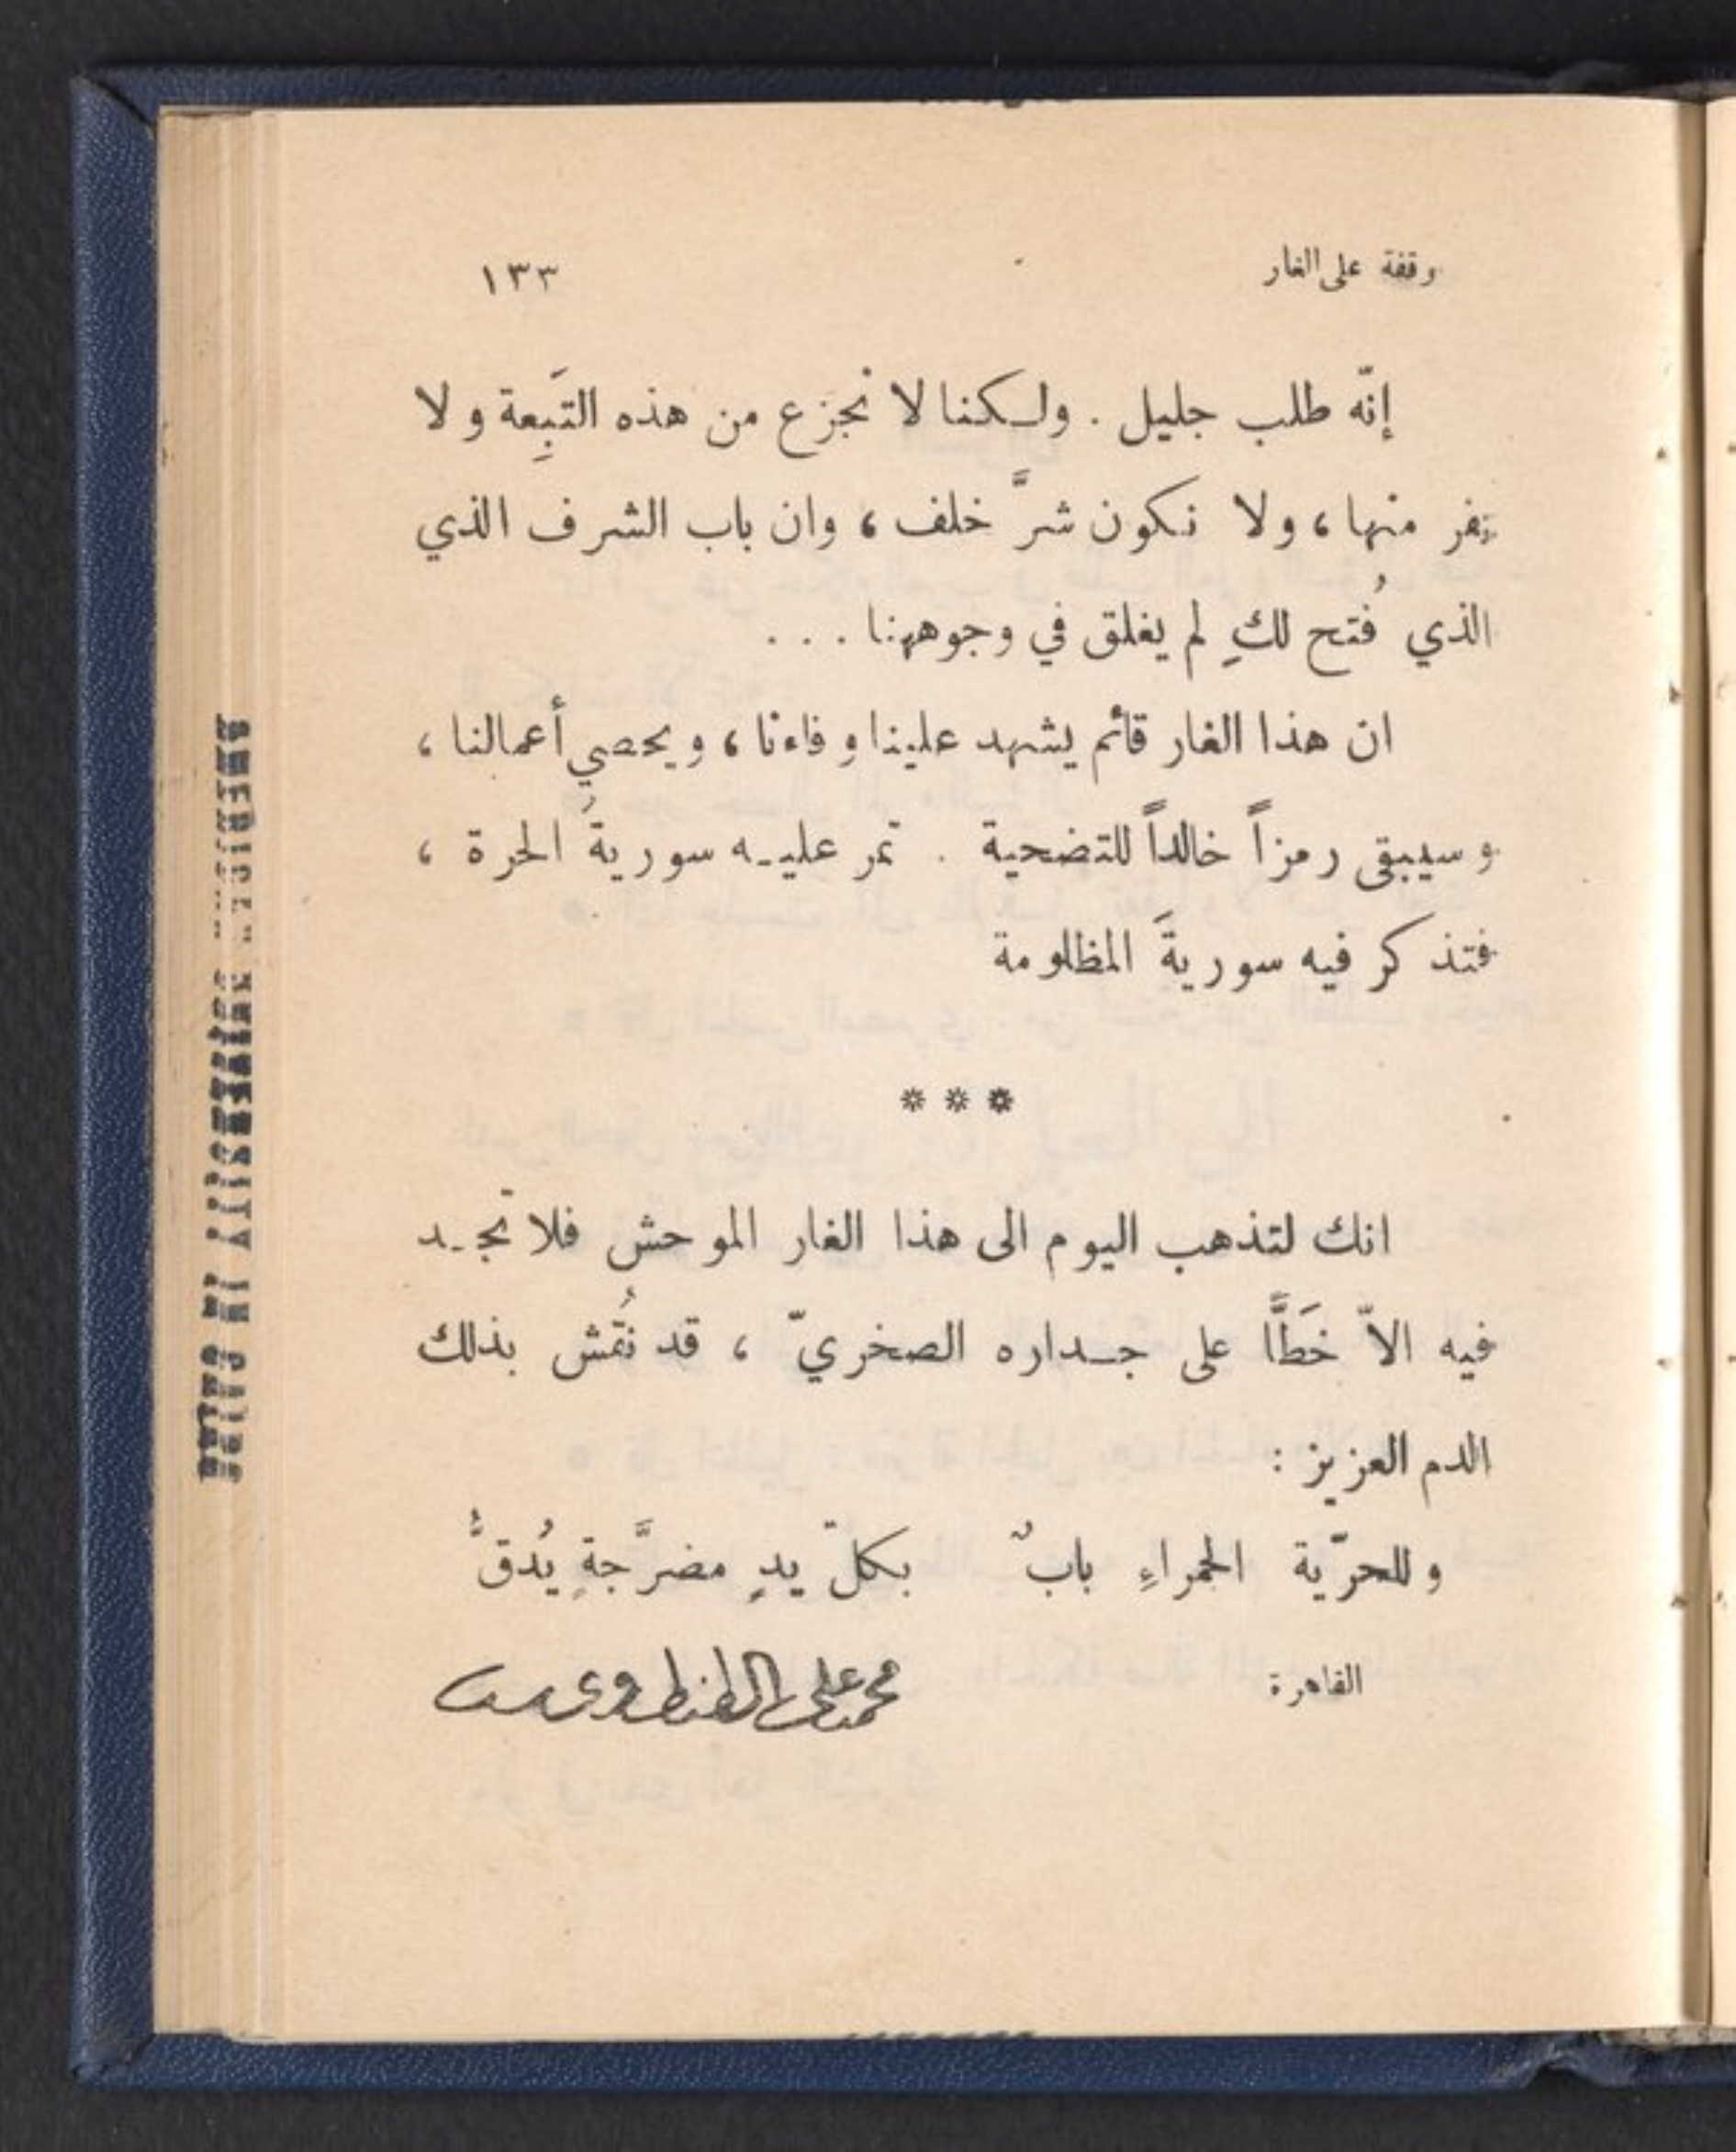 وقفة على الغار ١٣٣
إنّه طلب جليل . ولكننا لا نجزع من هذه التَبِعة ولا
نفر منها ، ولا نكون شرَّ خلف ، وان باب الشرف الذي
الذي فُتح لكِ لم يغلق في وجوهنا . . .
ان هذا الغار قائم يشهد علينا وفاءنا ، ويحصي أعمالنا ،
وسيبقى رمزاً خالداً للتضحية . تمر عليه سوريةُ الحرة ،
فتذكر فيه سوريةَ المظلومة
* * *
انك لتذهب اليوم الى هذا الغار الموحش فلا تجد
فيه الاّ خَطَّا على جداره الصخريّ ، قد نُقش بذلك
الدم العزيز :
وللحرّية الحمراءِ بابٌ بكلّ يدٍ مضرَّجةٍ يُدقُّ
القاهرة محمد علي الطنطاوي
AMERICAN UNIVERSITY IN CAIRO